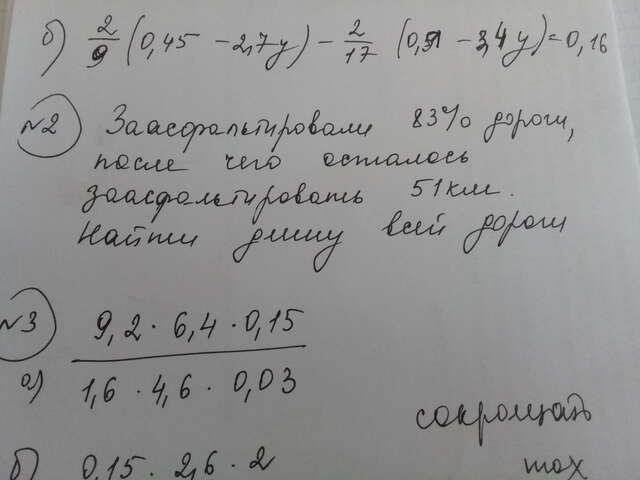 б) 2/9 (0,45 - 2,7y) - 2/17 (0,51 - 3,4y) = 0,16
№2 Заасфальтировали 83% дороги,
после чего осталось
заасфальтировать 51 км.
Найти длину всей дороги
№3
а) 9,2 · 6,4 · 0,15
1,6 · 4,6 · 0,03
сокращать
б) 0,15 · 2,6 · 2